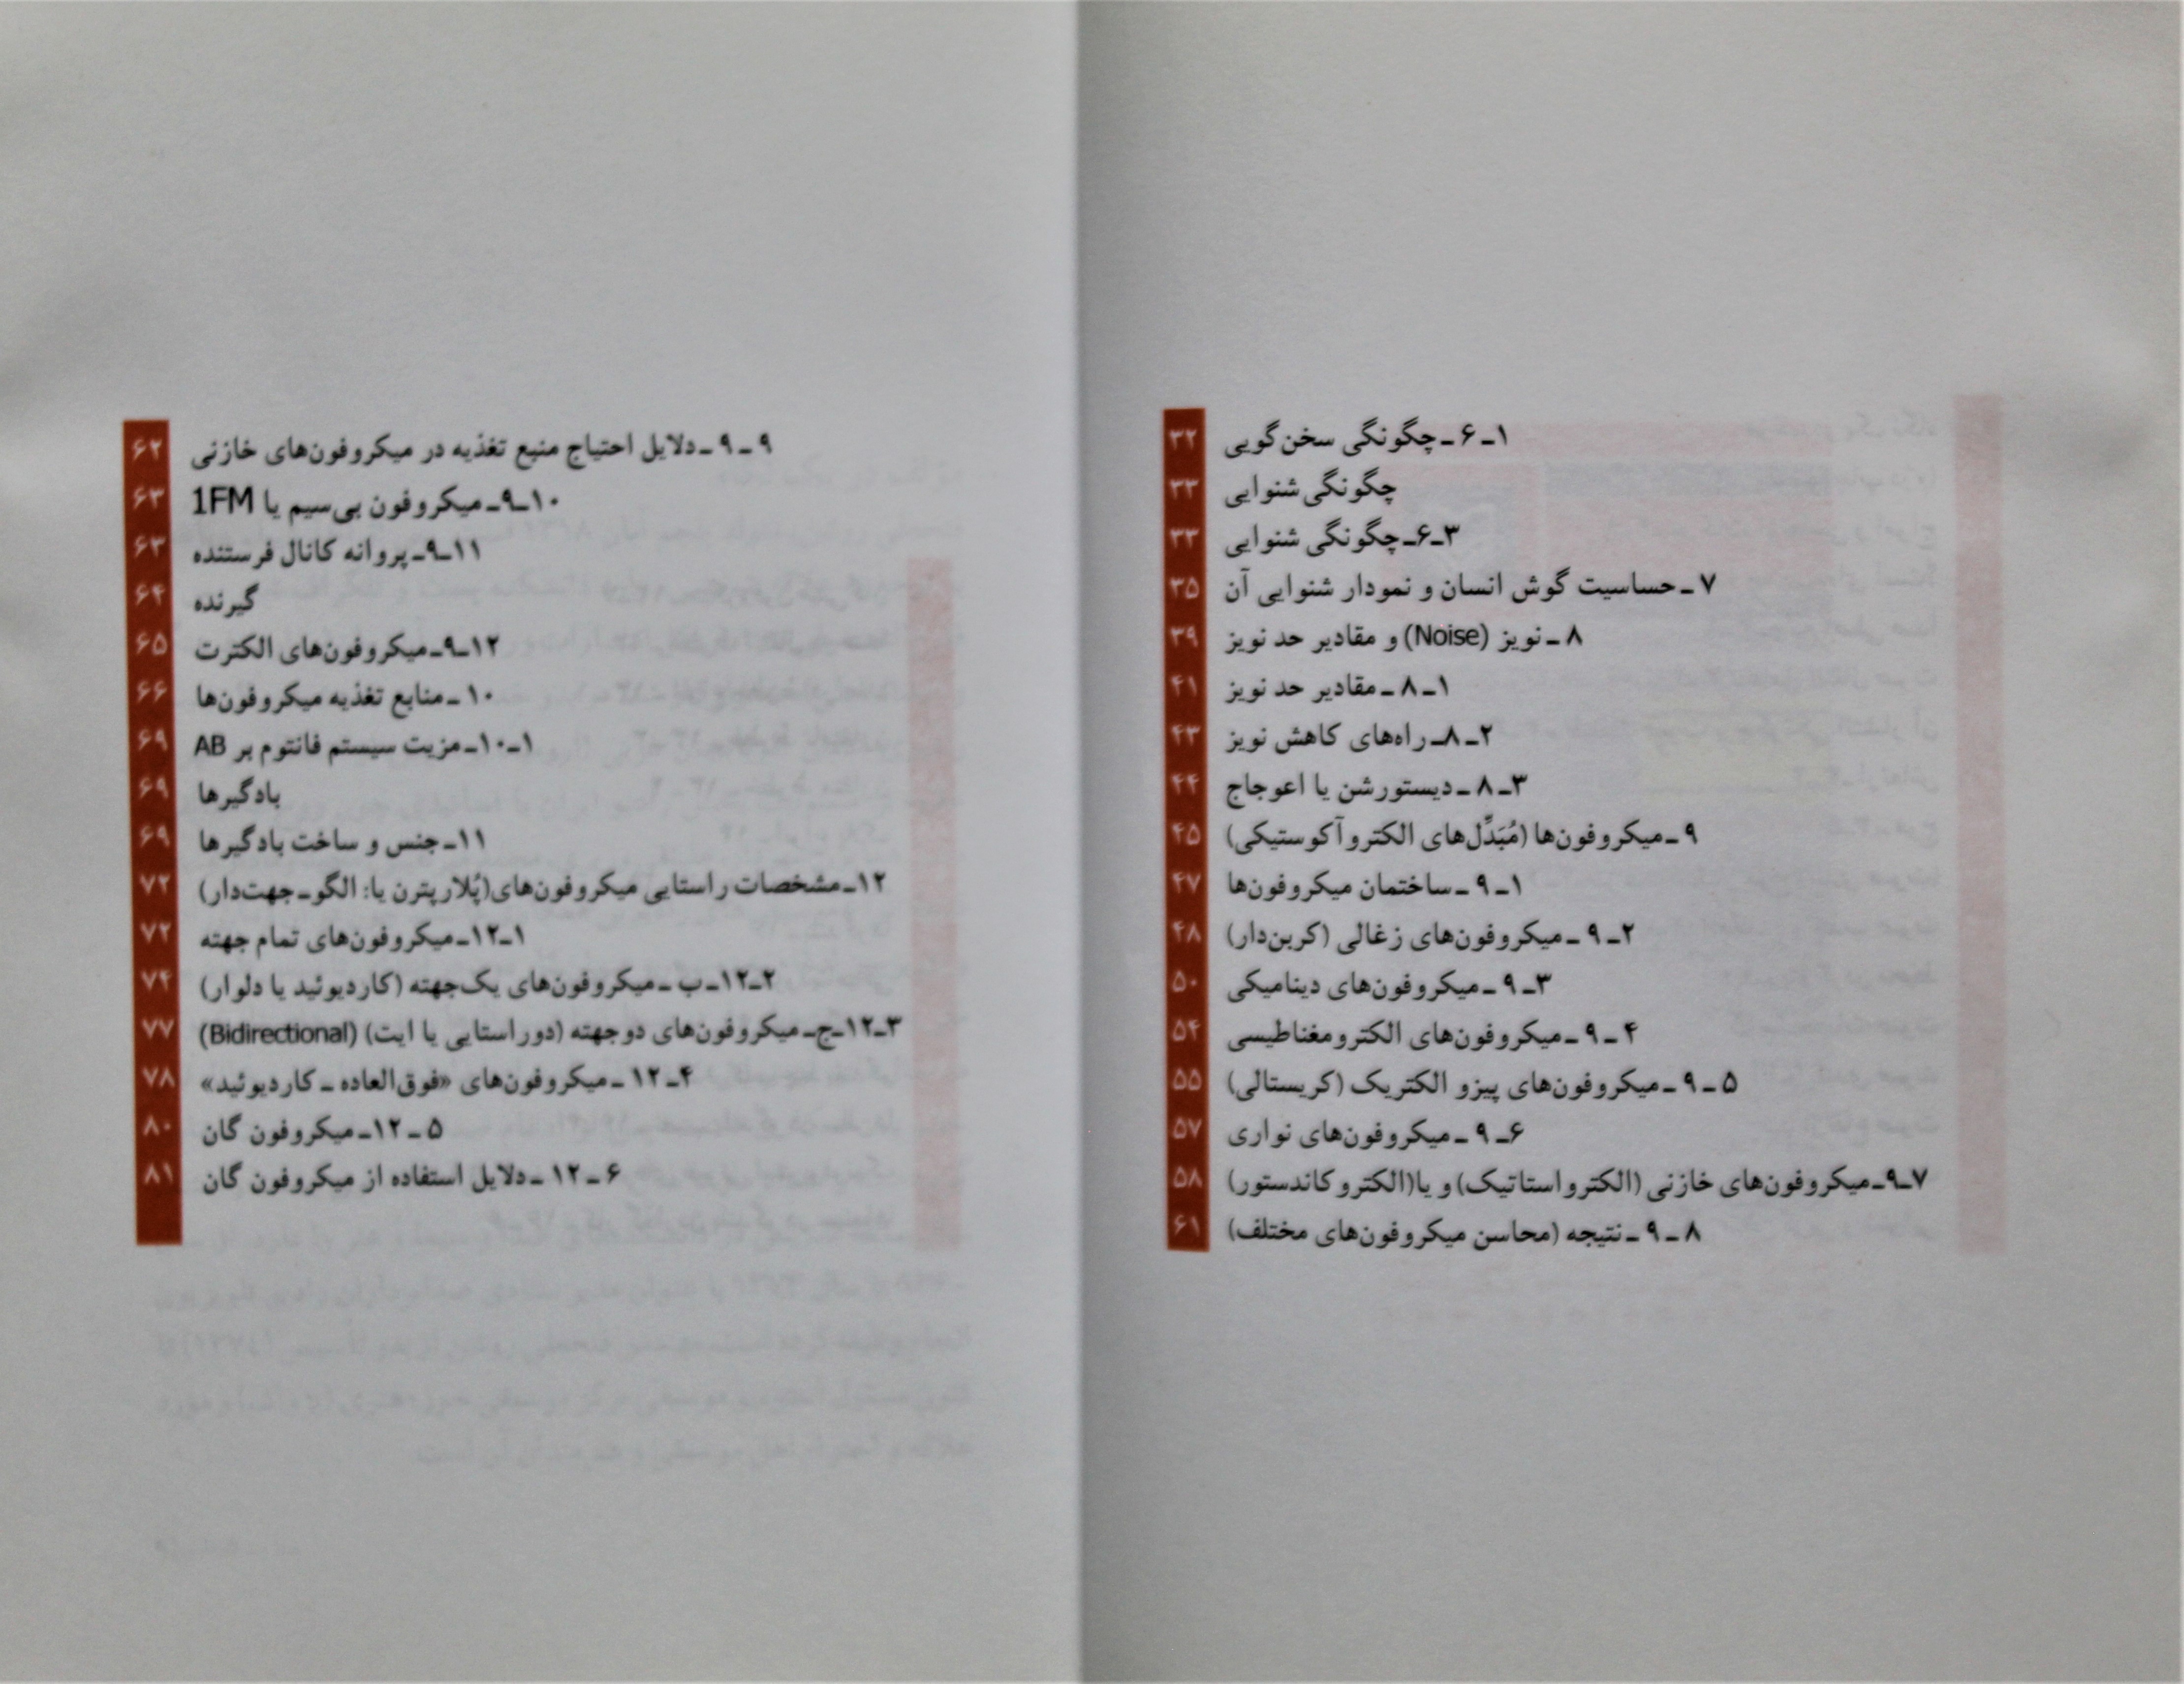 ۱ـ ۶ ـ چگونگی سخن‌گویی ۳۲
چگونگی شنوایی ۳۳
۳ـ۶ـ چگونگی شنوایی ۳۳
۷ ـ حساسیت گوش انسان و نمودار شنوایی آن ۳۵
۸ ـ نویز (Noise) و مقادیر حد نویز ۳۹
۱ـ ۸ ـ مقادیر حد نویز ۴۱
۲ـ ۸ـ راه‌های کاهش نویز ۴۳
۳ـ ۸ ـ دیستورشن یا اعوجاج ۴۴
۹ ـ میکروفون‌ها (مُبَدِّل‌های الکتروآکوستیکی) ۴۵
۱ـ ۹ ـ ساختمان میکروفون‌ها ۴۷
۲ـ ۹ ـ میکروفون‌های زغالی (کربن‌دار) ۴۸
۳ـ ۹ ـ میکروفون‌های دینامیکی ۵۰
۴ ـ ۹ ـ میکروفون‌های الکترومغناطیسی ۵۴
۵ ـ ۹ ـ میکروفون‌های پیزو الکتریک (کریستالی) ۵۵
۶ـ ۹ ـ میکروفون‌های نواری ۵۷
۷ـ۹ـ میکروفون‌های خازنی (الکترواستاتیک) و یا(الکتروکاندستور) ۵۸
۸ ـ ۹ ـ نتیجه (محاسن میکروفون‌های مختلف) ۶۱
۹ ـ ۹ ـ دلایل احتیاج منبع تغذیه در میکروفون‌های خازنی ۶۲
۱۰ـ۹ـ میکروفون بی‌سیم یا 1FM ۶۳
۱۱ـ۹ـ پروانه کانال فرستنده ۶۳
گیرنده ۶۴
۱۲ـ۹ـ میکروفون‌های الکترت ۶۵
۱۰ ـ منابع تغذیه میکروفون‌ها ۶۶
۱ـ۱۰ـ مزیت سیستم فانتوم بر AB ۶۹
بادگیرها ۶۹
۱۱ـ جنس و ساخت بادگیرها ۶۹
۱۲ـ مشخصات راستایی میکروفون‌های(پُلارپترن یا: الگو ـ جهت‌دار) ۷۲
۱ـ۱۲ـ میکروفون‌های تمام جهته ۷۲
۲ـ۱۲ـ ب ـ میکروفون‌های یک‌جهته (کاردیوئید یا دلوار) ۷۴
۳ـ۱۲ـ ج ـ میکروفون‌های دوجهته (دوراستایی یا ایت) (Bidirectional) ۷۷
۴ـ ۱۲ ـ میکروفون‌های «فوق‌العاده ـ کاردیوئید» ۷۸
۵ ـ ۱۲ـ میکروفون گان ۸۰
۶ ـ ۱۲ ـ دلایل استفاده از میکروفون گان ۸۱